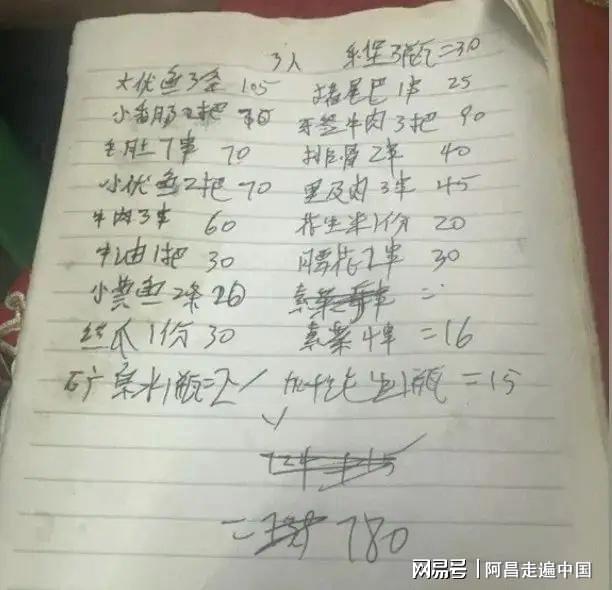 3人 乐堡3瓶=30
大优鱼3条 105 猪尾巴1串 25
小香肠2把 牙签牛肉3把 90
毛肚7串 70 排骨2串 40
小优鱼2把 70 里及肉3串 45
牛肉3串 60 花生米1份 20
牛油1把 30 腰花2串 30
小黄鱼2条 20 素菜 =
丝瓜1份 30 素菜4串 =16
矿泉水1瓶=2 1瓶 =15
= 780
网易号 | 阿昌走遍中国